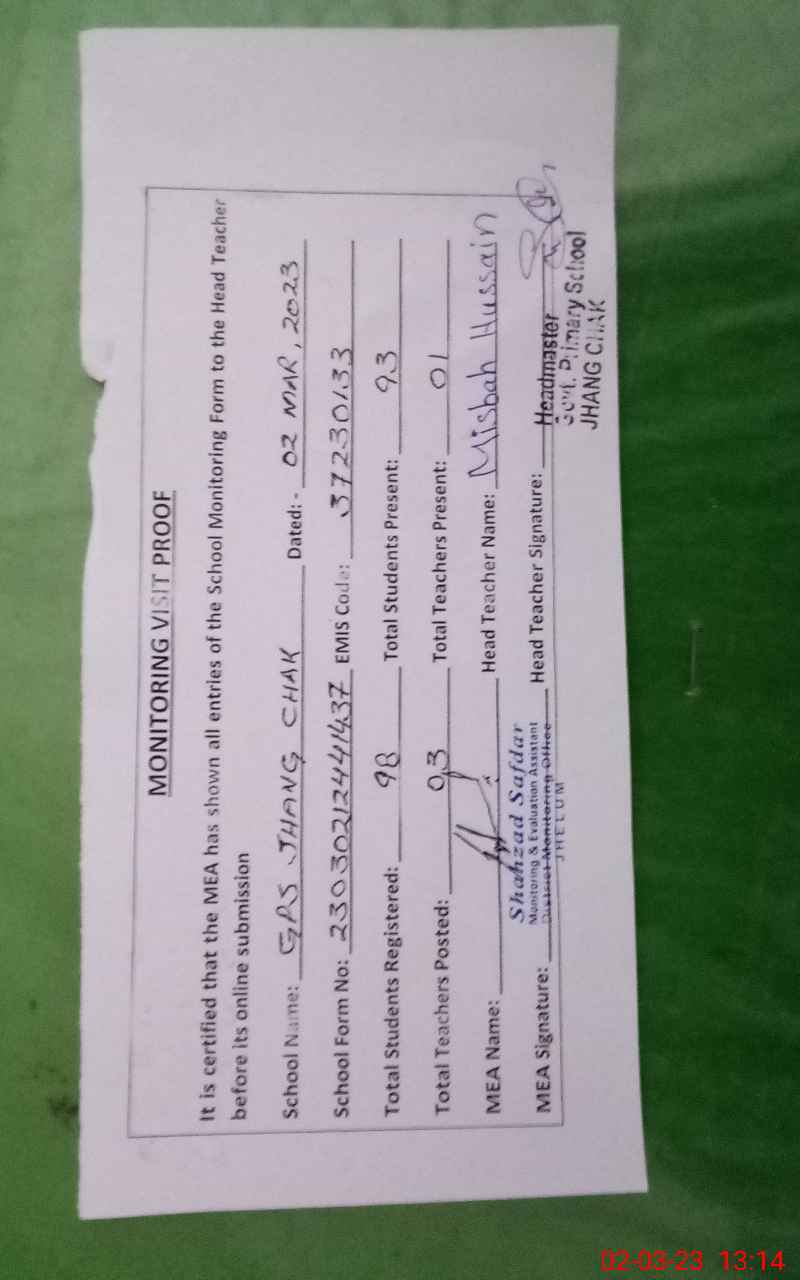 MONITORING VISIT PROOF
It is certified that the MEA has shown all entries of the School Monitoring Form to the Head Teacher
before its online submission
School Name: GPS JHANG CHAK Dated: - 02 MAR, 2023
School Form No: 23030212441437 EMIS Code: 37230133
Total Students Registered: 98 Total Students Present: 93
Total Teachers Posted: 03 Total Teachers Present: 01
MEA Name: Head Teacher Name: Misbah Hussain
Shahzad Safdar
Monitoring & Evaluation Assistant
District Monitoring Office
JHELUM
MEA Signature: Head Teacher Signature:
Headmaster
Govt. Primary School
JHANG CHAK
02-03-23 13:14